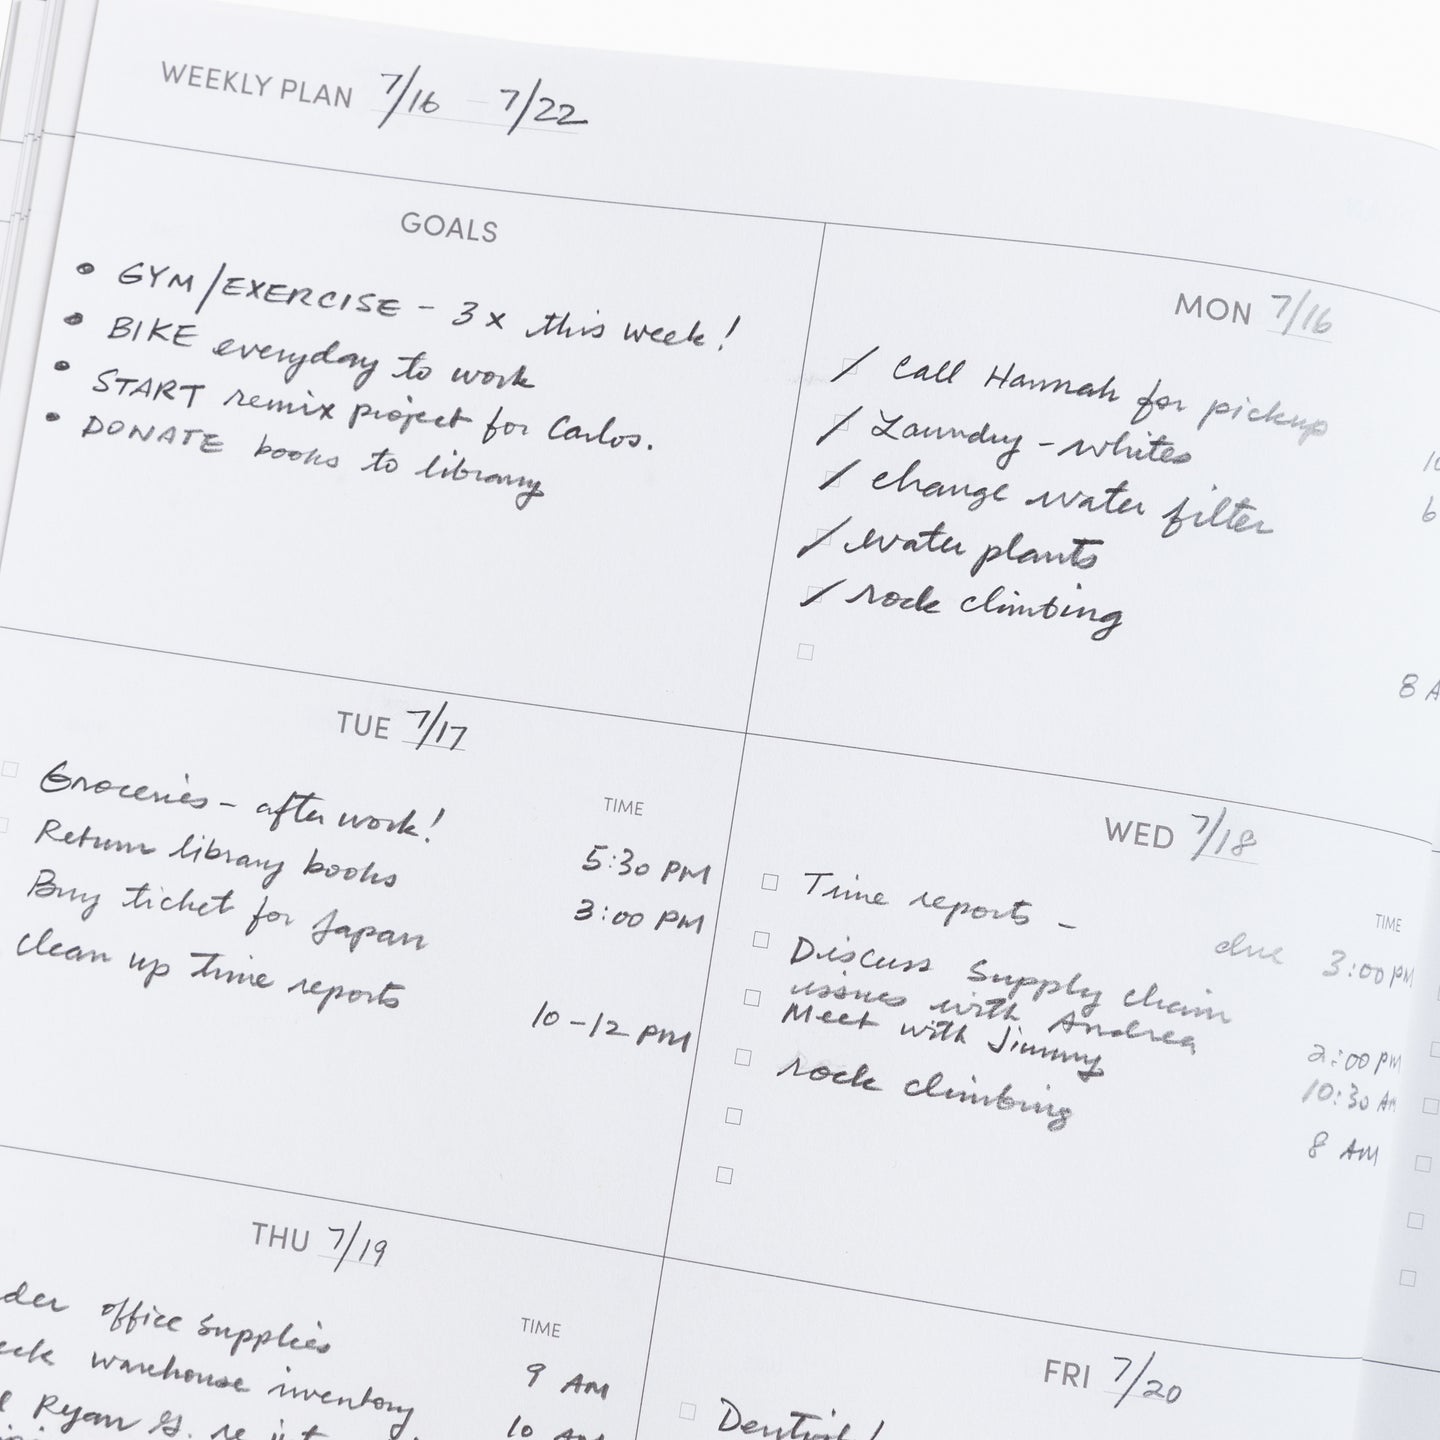 WEEKLY PLAN 7/16 - 7/22
GOALS
• GYM/EXERCISE - 3x this week!
• BIKE everyday to work
• START remix project for Carlos.
• DONATE books to library
MON 7/16
Call Hannah for pickup
Laundry - whites
change water filter
water plants
rock climbing
8 A
TUE 7/17
TIME
Groceries - after work! 5:30 PM
Return library books 3:00 PM
Buy ticket for Japan
Clean up time reports 10-12 PM
WED 7/18
TIME
Time reports - due 3:00 PM
Discuss supply chain
issues with Andrea 2:00 PM
Meet with Jimmy 10:30 AM
rock climbing 8 AM
THU 7/19
TIME
der office supplies 9 AM
warehouse inventory 10 AM
Ryan G. re
FRI 7/20
Dentist!